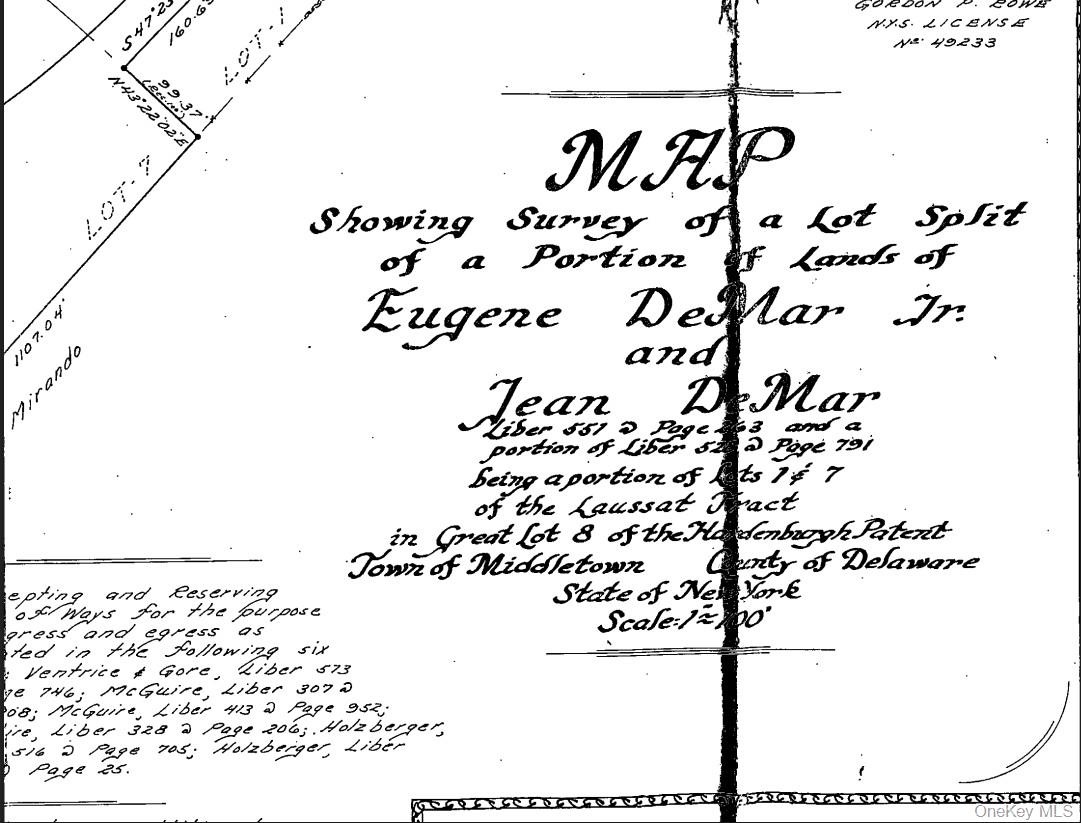 GORDON P. ROWE
N.Y.S. LICENSE
Nº 49233
S 47° 23'
160.69
LOT-1
and
99.37'
N 43° 22' 02" E
LOT-7
1107.04'
Mirando
MAP
Showing Survey of a Lot Split
of a Portion of Lands of
Eugene DeMar Jr.
and
Jean DeMar
Liber 551 @ Page 263 and a
portion of Liber @ Page 791
being a portion of Lots 1 & 7
of the Laussat Tract
in Great Lot 8 of the Hardenburgh Patent
Town of Middletown County of Delaware
State of New York
Scale: 1" = 100'
epting and Reserving
of Ways for the purpose
gress and egress as
ted in the following six
: Ventrice & Gore, Liber 573
ge 746; McGuire, Liber 307 @
08; McGuire, Liber 413 @ Page 952;
ire, Liber 328 @ Page 206; Holzberger,
516 @ Page 705; Holzberger, Liber
@ Page 25.
OneKey MLS